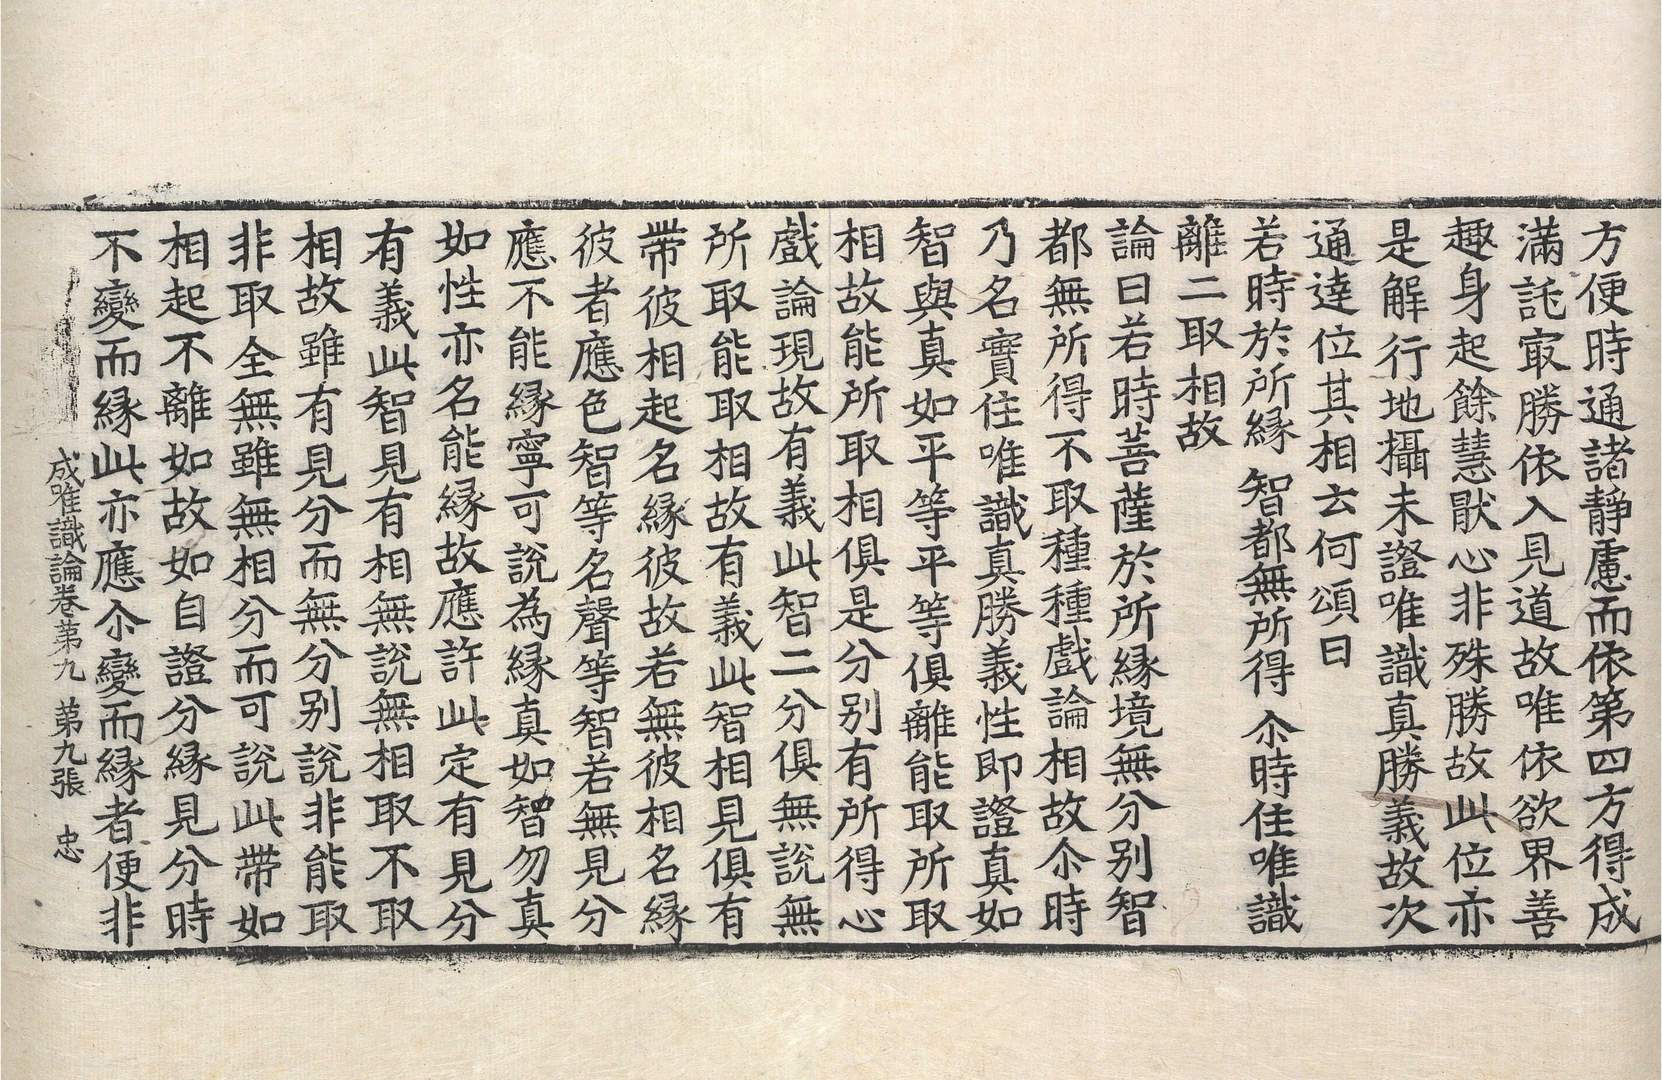 方便時通諸靜慮而依第四方得成
滿託㝡勝依入見道故唯依欲界善
趣身起餘慧猒心非殊勝故此位亦
是解行地攝未證唯識真勝義故次
通達位其相云何頌曰
若時於所緣 智都無所得 尒時住唯識
離二取相故
論曰若時菩薩於所緣境無分別智
都無所得不取種種戲論相故尒時
乃名實住唯識真勝義性即證真如
智與真如平等平等俱離能取所取
相故能所取相俱是分別有所得心
戲論現故有義此智二分俱無說無
所取能取相故有義此智相見俱有
帶彼相起名緣彼故若無彼相名緣
彼者應色智等名聲等智若無見分
應不能緣寧可說為緣真如智勿真
如性亦名能緣故應許此定有見分
有義此智見有相無說無相取不取
相故雖有見分而無分別說非能取
非取全無雖無相分而可說此帶如
相起不離如故如自證分緣見分時
不變而緣此亦應尒變而緣者便非
成唯識論卷第九 第九張 忠